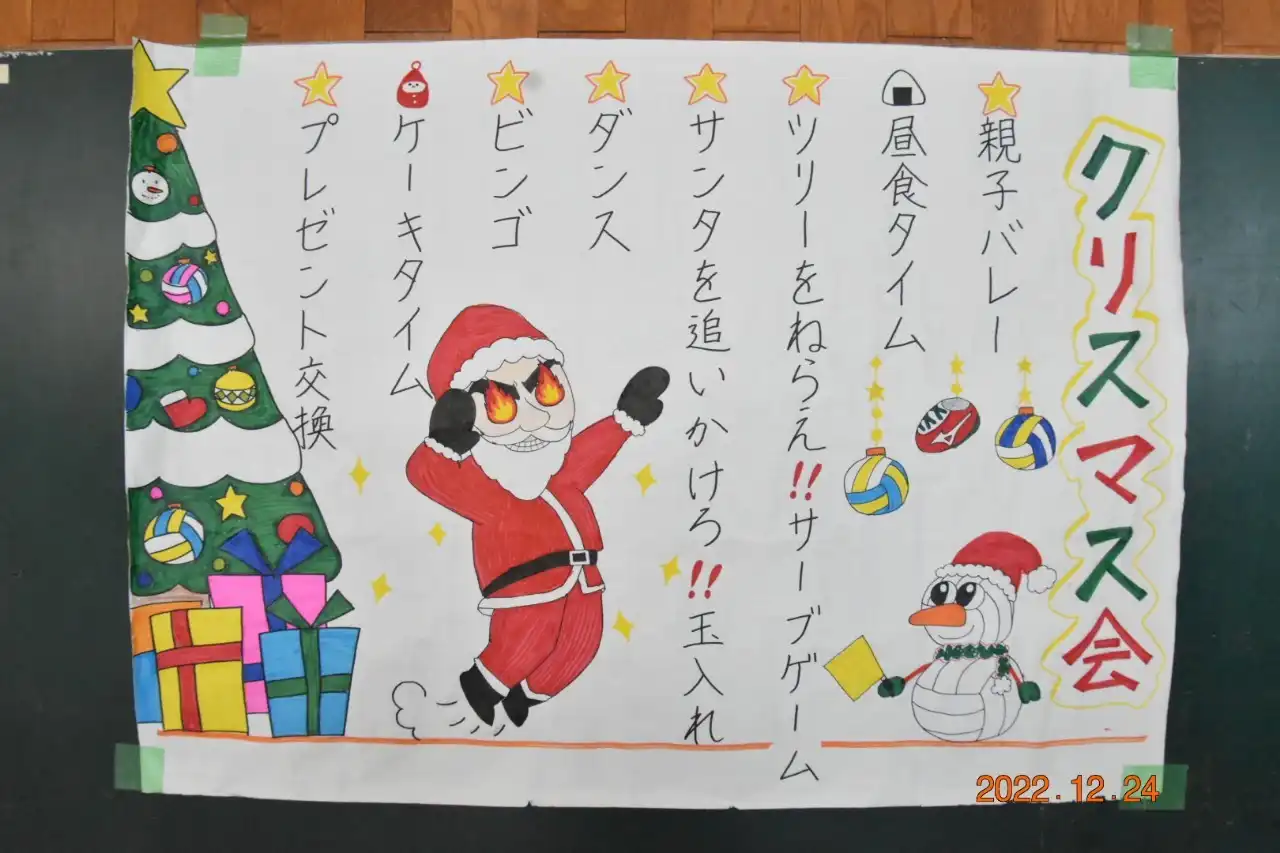 クリスマス会
親子バレー
昼食タイム
ツリーをねらえ!!サーブゲーム
サンタを追いかけろ!!玉入れ
ダンス
ビンゴ
ケーキタイム
プレゼント交換
2022.12.24